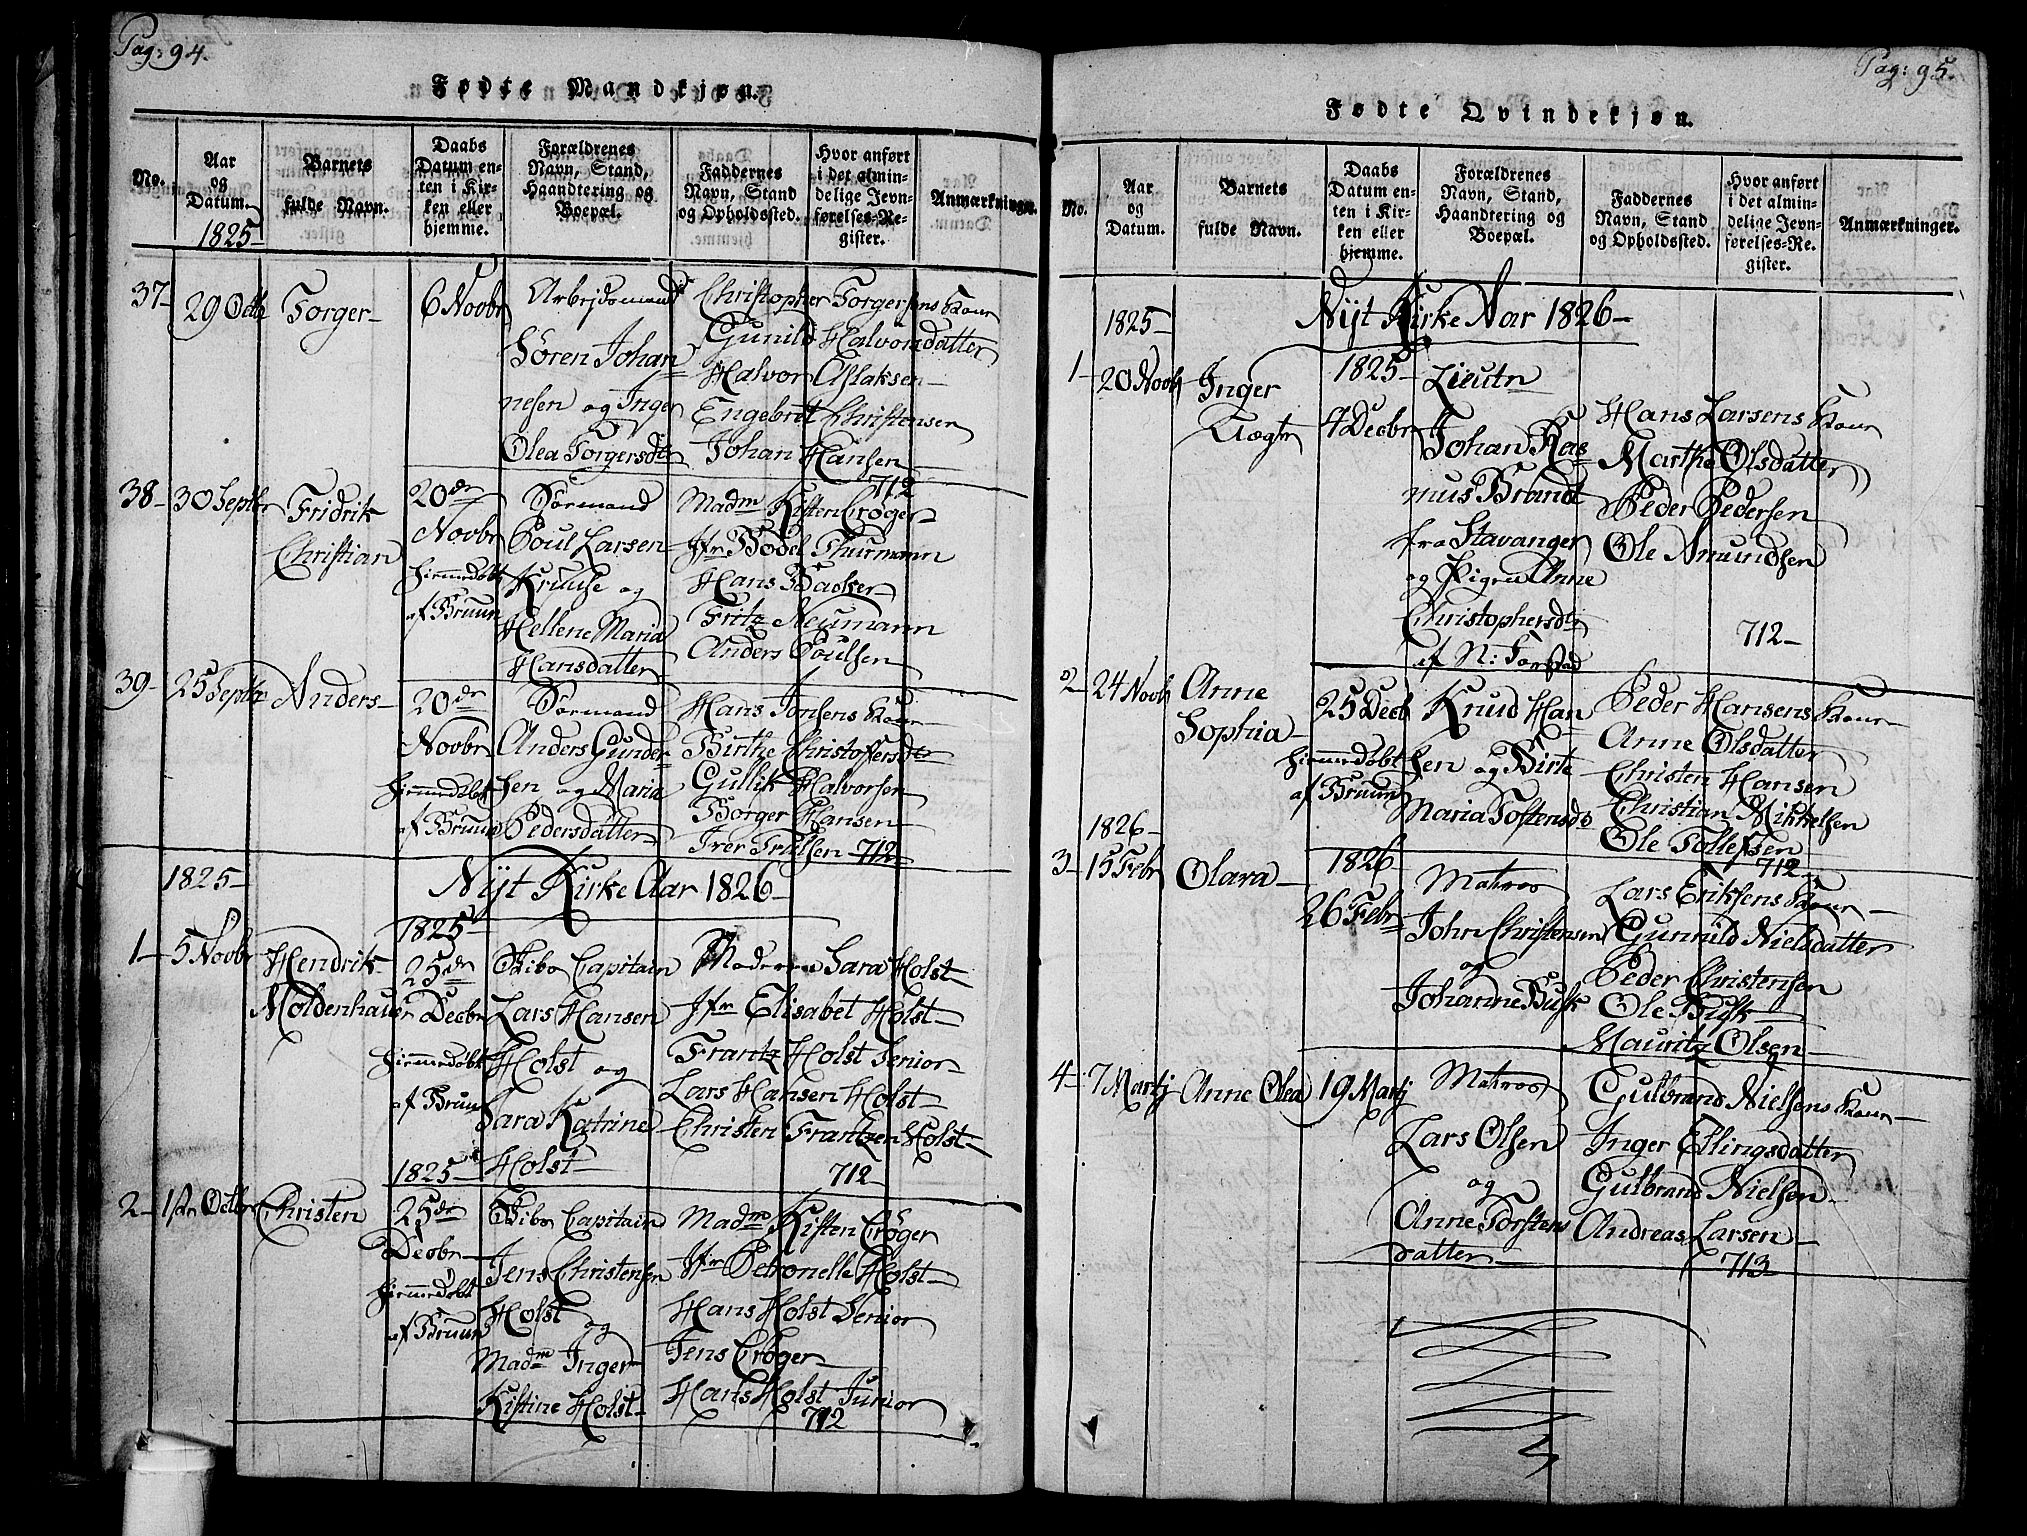 Pag: 94.
Fødte Mandkjøn.
No.
Aar
og
Datum.
1825-
Barnets
fulde Navn.
Daabs
Datum en-
ten i Kir-
ken eller
hjemme.
Forældrenes
Navn, Stand,
Haandtering og
Boepæl.
Faddernes
Navn, Stand
og Opholdssted.
Hvor anført
i det almin-
delige Jevn-
førelses-Re-
gister.
Anmærkninger.
37- 29 Octb
Torger-
6 Novbr
Arbejdsmand
Sören Johan
nesen og Inger
Olea Torgersdtr
Christopher Torgersens Kone
Gunild Halvorsdatter
Halvor Aslaksen-
Engebret Christensen
Johan Hansen
712
38- 30 Septbr
Fridrik
Christian
20de
Novbr
hiemmedöbt
af Bruun
Sörmand
Poul Larsen
Kruuse og
Hellene Maria
Hansdatter
Madme Kisten Cröger-
Jfr Bodel Thurmann
Hans Backer
Fritz Neumann
Anders Poulsen
39- 25 Septbr
Anders-
20de
Novbr
hiemmedöbt
af Bruun
Sörmand
Anders Gunder
sen og Maria
Pedersdatter
Hans Jonsens Kone-
Birthe Christoffersdtr
Gullik Halvorsen
Borger Hansen-
Iver Trulsen 712-
1825-
Nyt Kirke Aar 1826-
1- 5 Novbr
Hendrik
Moldenhauer
1825-
25de
Decbr
hiemmedöbt
af Bruun
Skibs Capitain
Lars Hansen
Holst og
Sara Katrine
Holst-
Sara Holst-
Jfr Elisabet Holst-
Frantz Holst Senior-
Lars Hansen Holst-
Christen Frantzen Holst-
712-
2- 1ste Octbr
Christen
1825-
25de
Decbr-
hiemmedöbt
af Bruun
Skibs Capitain
Jens Christensen
Holst og
Madme Inger
Kistine Holst-
Madme Kisten Cröger
Jfr Petronelle Holst-
Hans Holst Senior
Jens Cröger-
Hans Holst Junior
712
Pag: 95.
Fødte Qvindekjøn.
No.
Aar
og
Datum.
Barnets
fulde Navn.
Daabs
Datum en-
ten i Kir-
ken eller
hjemme.
Forældrenes
Navn, Stand,
Haandtering og
Boepæl.
Faddernes
Navn, Stand
og Opholdssted.
Hvor anført
i det almin-
delige Jevn-
førelses-Re-
gister.
Anmærkninger.
1825-
Nyt Kirke Aar 1826-
1- 20 Novb
Inger
Uægte
1825-
4 Decbr
Lieutn
Johan Ras
mus Brandt
fra Stavanger
og Pigen Anne
Christophersdtr
af N:
Hans Larsens Kone
Marthe Olsdatter
Peder Pedersen
Ole Amundsen
712-
2- 24 Novb
Anne
Sophia-
25 Decb
hiemmedöbt
af Bruun
Knud Han
sen og Birte
Maria Toftensdr
Peder Hansens Kone-
Anne Olsdatter
Christen Hansen
Christian Mikkelsen
Ole Tollefsen
712-
1826-
3- 15 Febr
Olara-
1826
26 Febr
Matros
John Christensen
og
Johanne Busk
Lars Eriksens Kone-
Gunnild Nielsdatter
Peder Christensen
Ole Busk-
Mauritz Olsen-
4- 7 Martj
Anne Olea
19 Martj
Matros
Lars Olsen
og
Anne Torstens
datter-
Gulbrand Nielsens Kone-
Inger Ellingsdatter
Gulbrand Nielsen-
Andreas Larsen-
713-